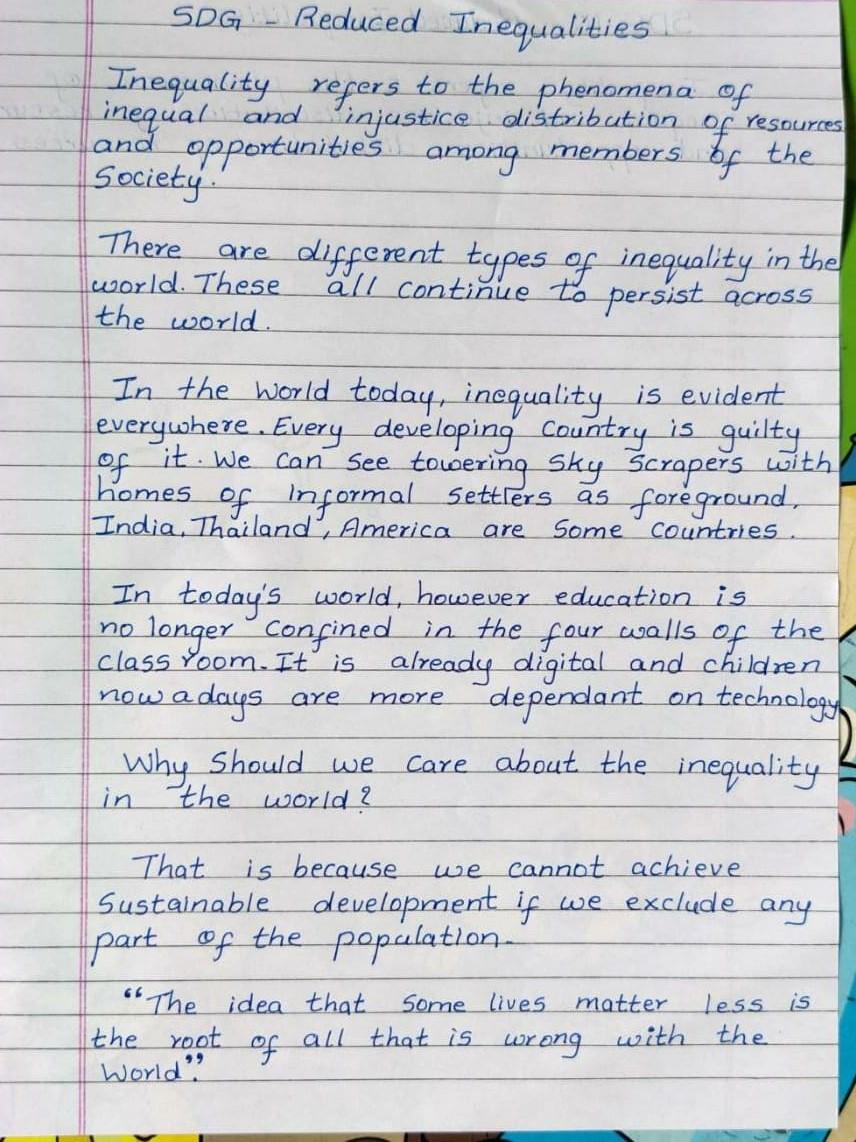 SDG - Reduced Inequalities
Inequality refers to the phenomena of
inequal and injustice distribution of resources
and opportunities among members of the
Society.
There are different types of inequality in the
world. These all continue to persist across
the world.
In the World today, inequality is evident
everywhere. Every developing Country is guilty
of it. We Can See towering Sky Scrapers with
homes of Informal Settlers as foreground.
India, Thailand, America are Some Countries.
In today's world, however education is
no longer Confined in the four walls of the
class room. It is already digital and children
now a days are more dependant on technology
Why Should we Care about the inequality
in the world?
That is because we cannot achieve
Sustainable development if we exclude any
part of the population.
"The idea that Some lives matter less is
the root of all that is wrong with the
World".